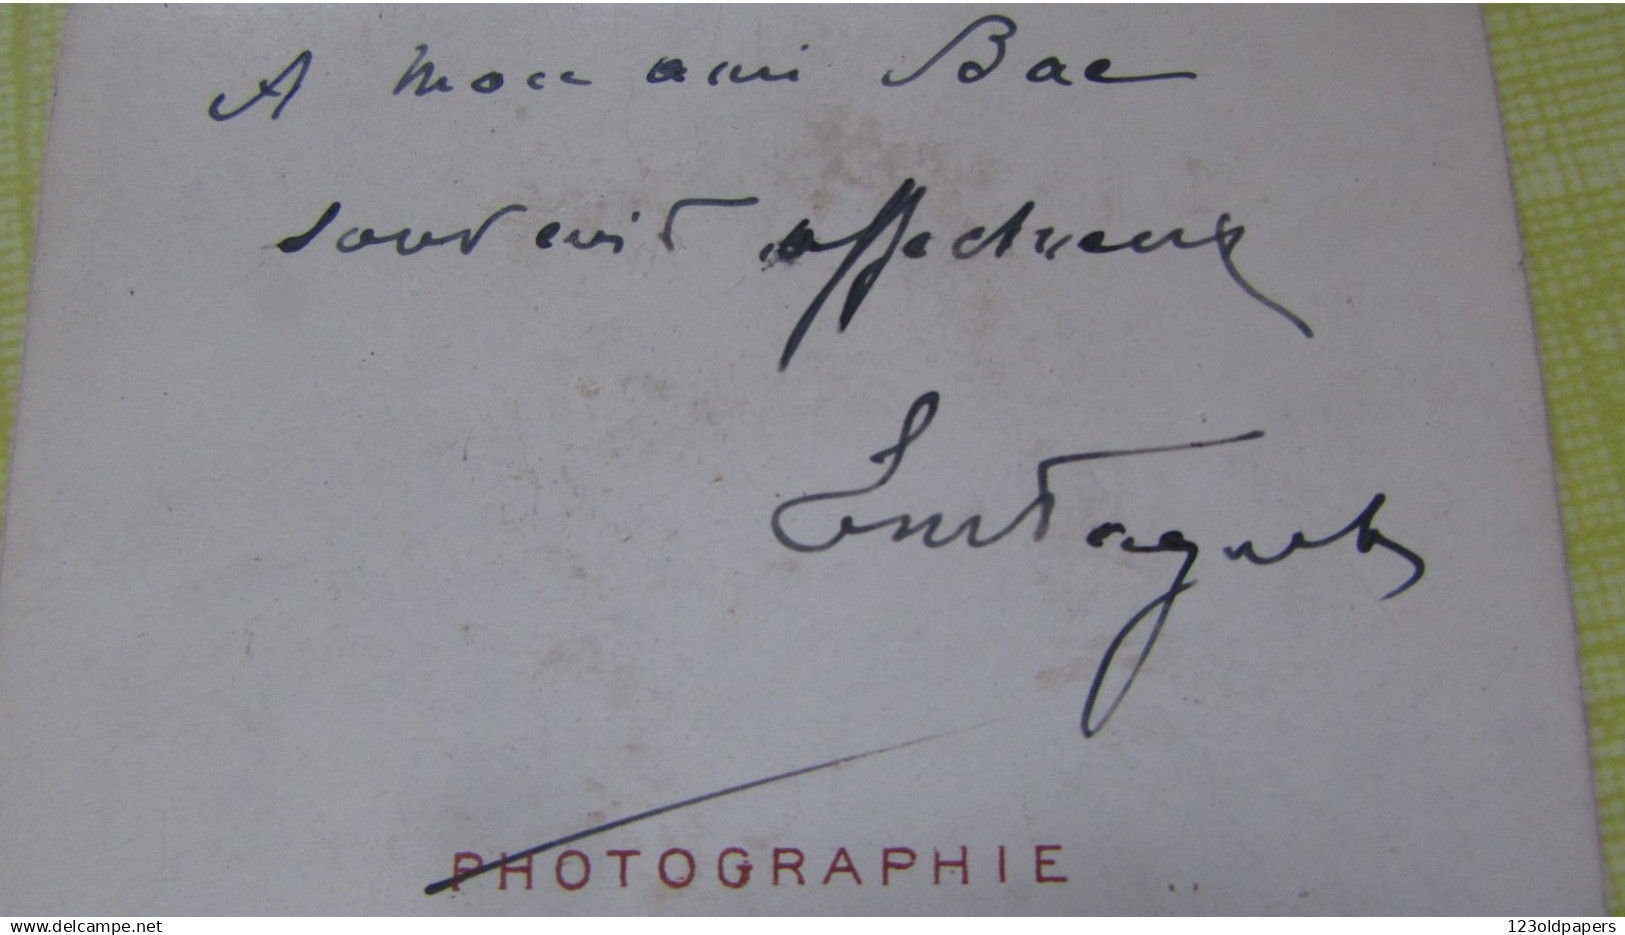 A mon ami Bac
souvenir affectueux
PHOTOGRAPHIE
www.delcampe.net
123oldpapers